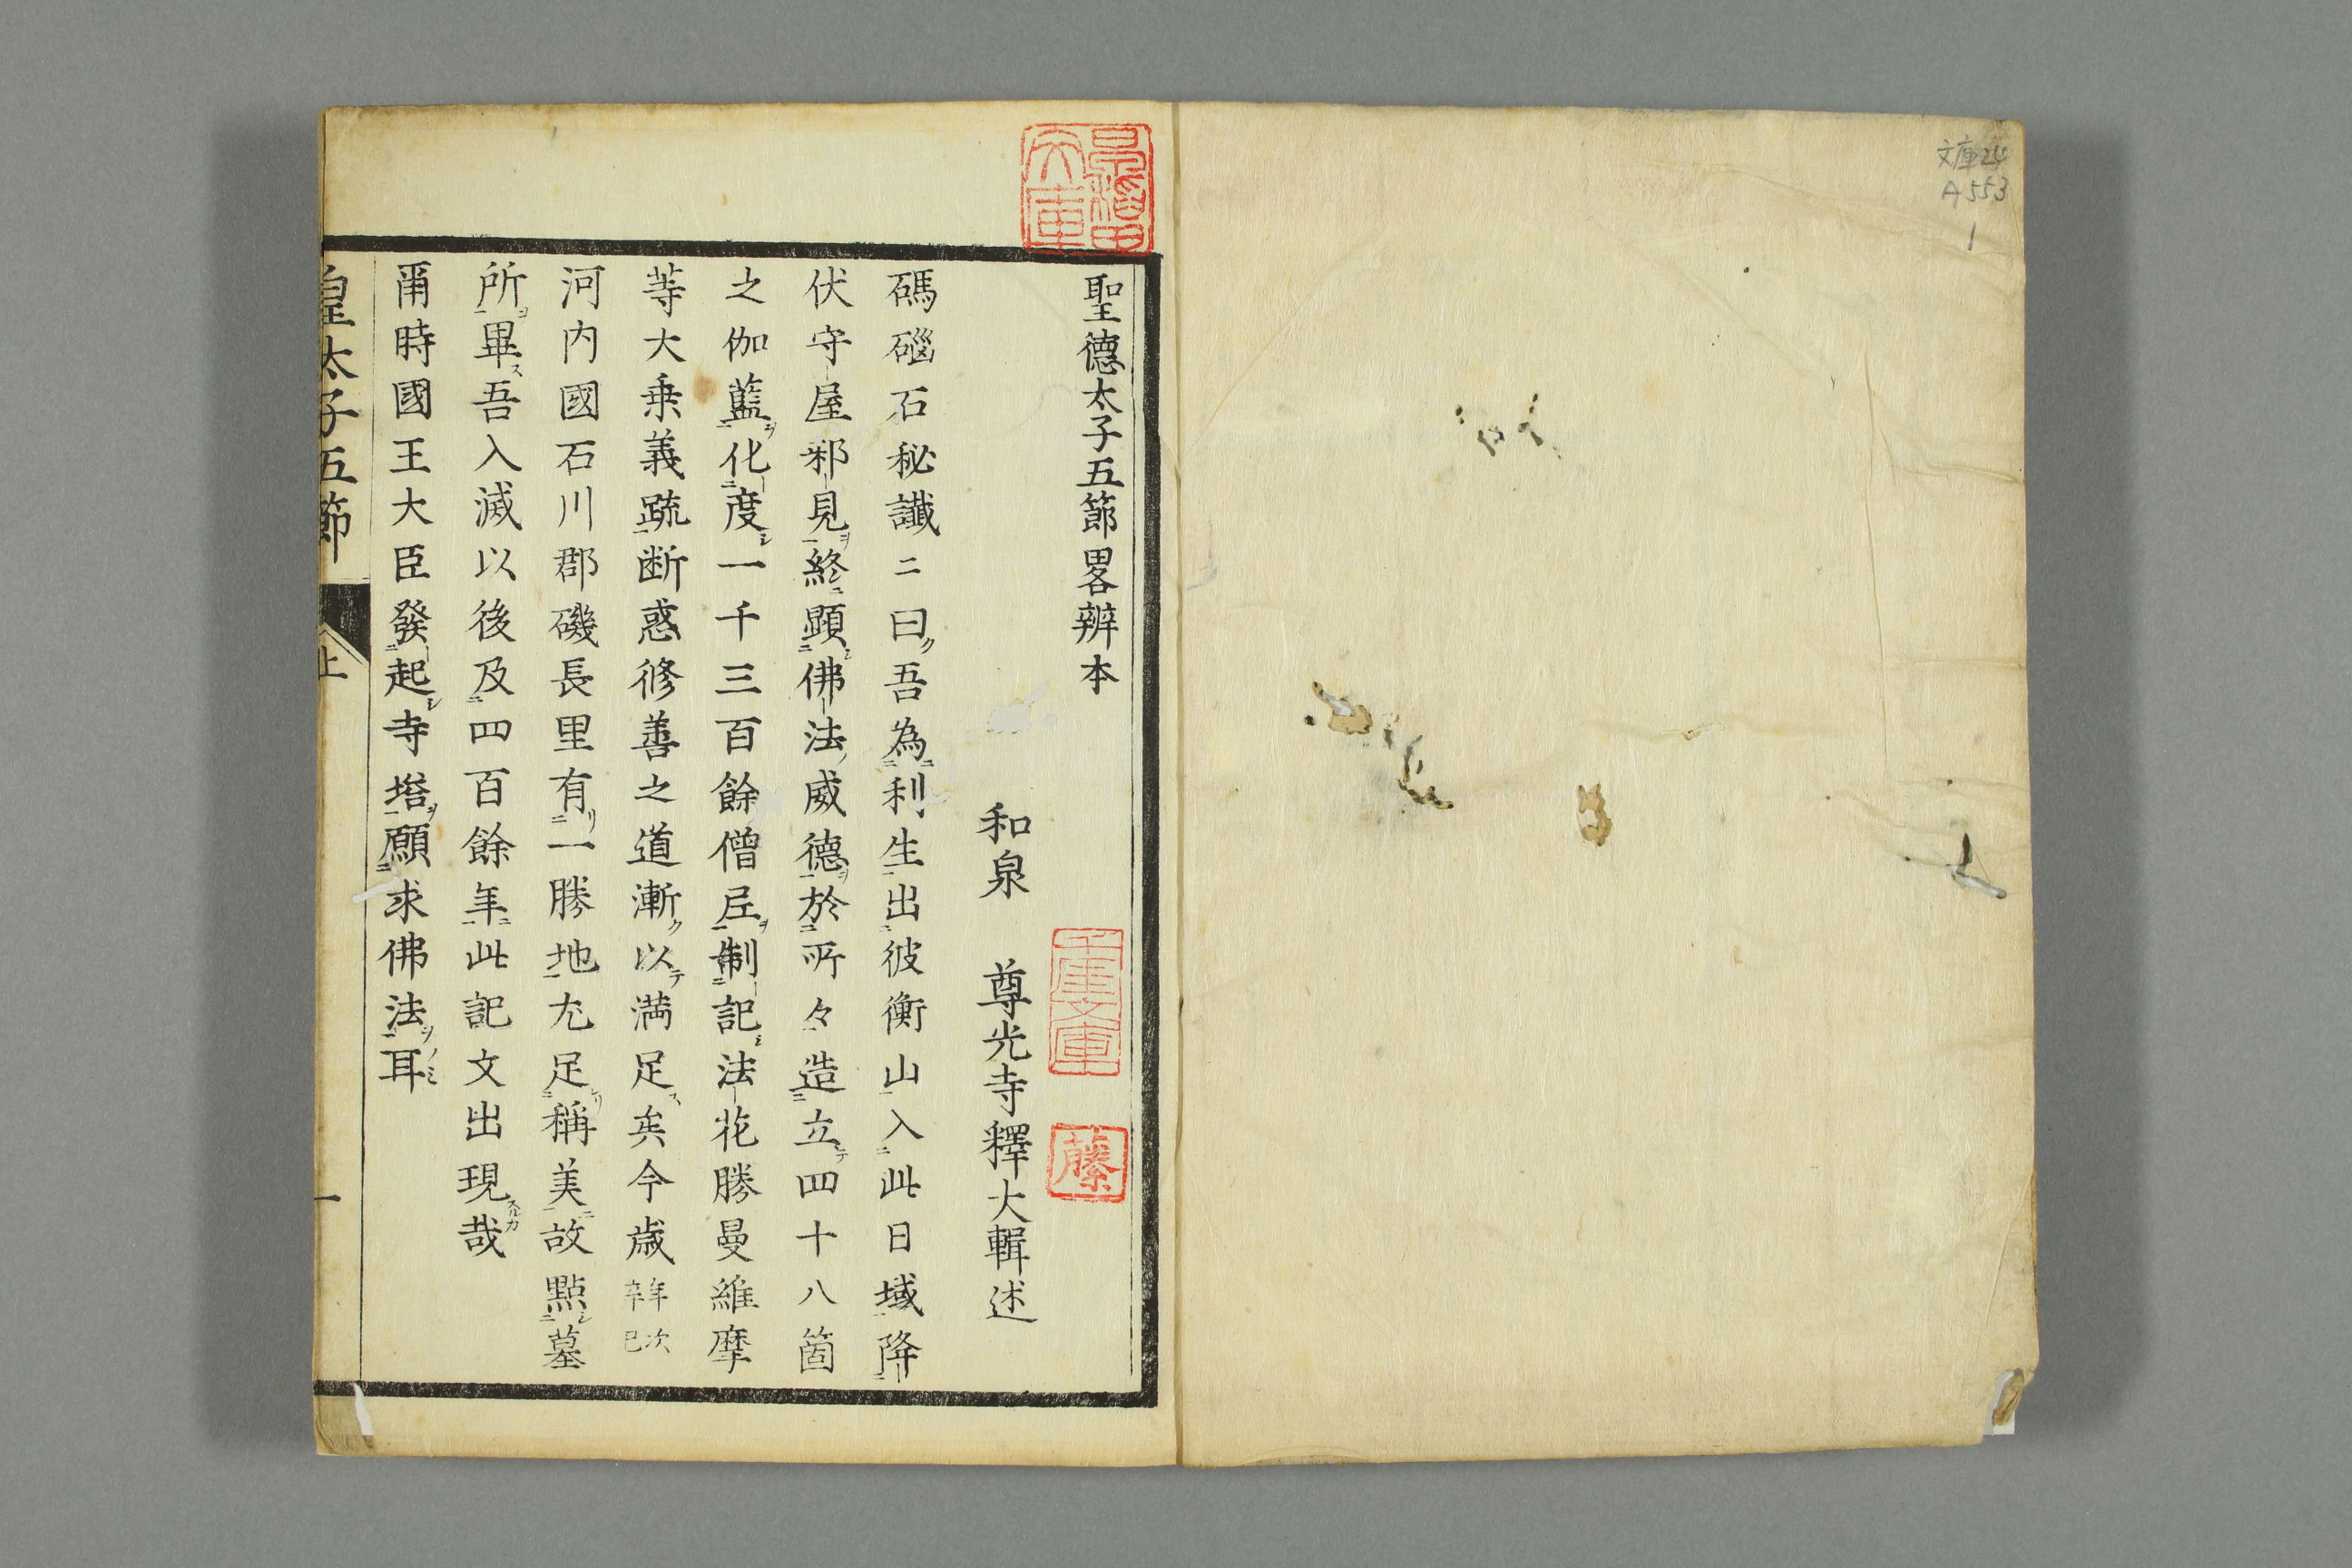 文庫24
A553
1
聖德太子五節畧辨本
和泉 尊光寺釋大輯述
碼碯石秘讖ニ曰ク吾為利生出彼衡山入此日域降
伏守屋邪見終顕佛法威德於所々造立四十八箇
之伽藍化度一千三百餘僧尼制記法花勝曼維摩
等大乗義疏断惑修善之道漸以満足矣今歳年次辛巳
河内國石川郡磯長里有一勝地尤足稱美故點墓
所畢吾入滅以後及四百餘年此記文出現哉
爾時國王大臣發起寺塔願求佛法耳
皇太子五節
上
一
文庫
千厓文庫
藤